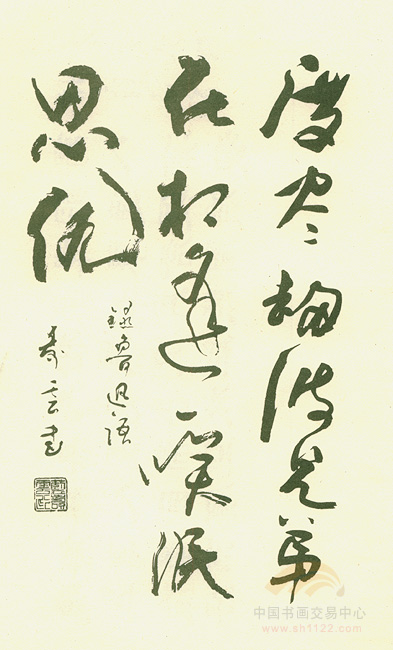 度尽劫波兄弟
在相逢一笑泯
恩仇
録鲁迅语
寿云书
中国书画交易中心
www.sh1122.com